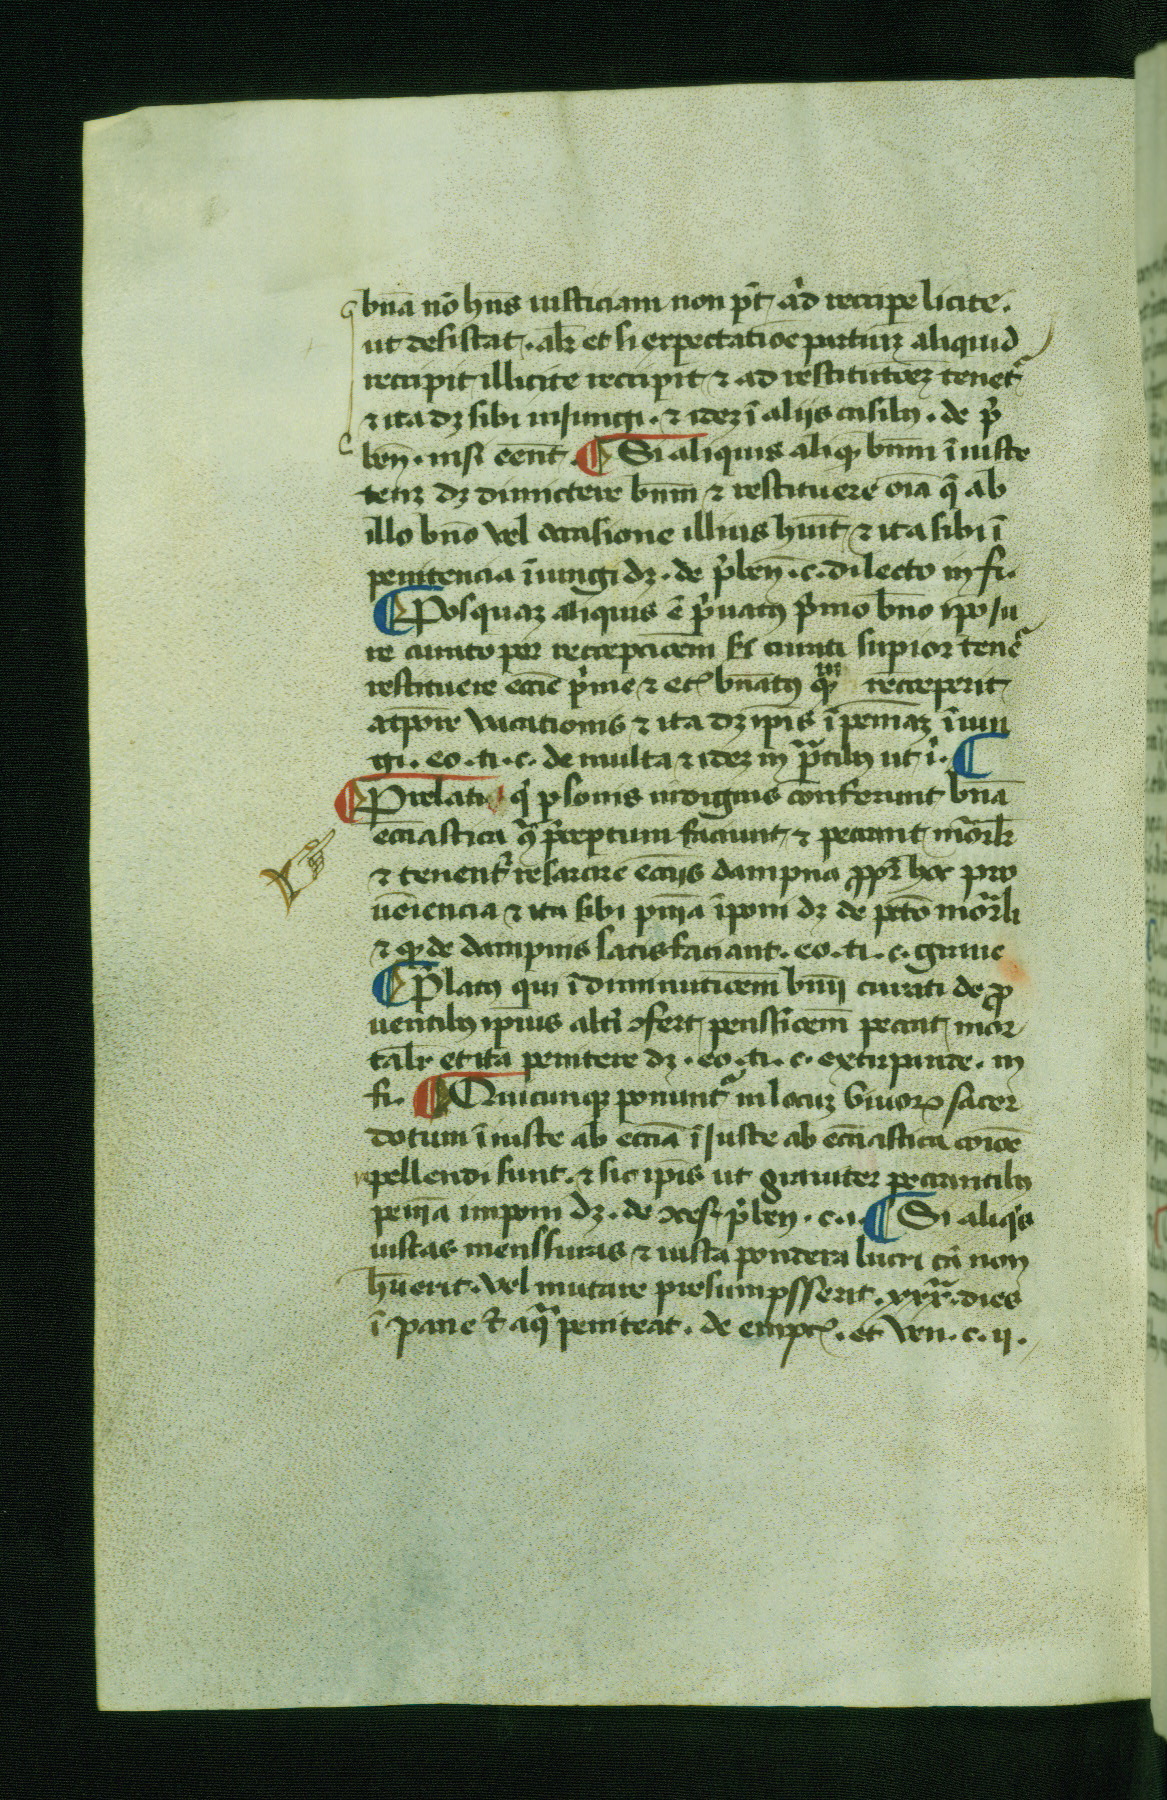 bn̄a nō hn̄s iusticiam non pt̄ aɫd recipe licite.
ut desistat. alr̄ et si expectatioē partiuȝ aliquid
recipit illicite recipit ⁊ ad restitutōeȝ tenet᷑
⁊ ita dȝ sibi iniungi. ⁊ ideȝ ī aliis casibꝰ. de p̄
ben̄. nisi eēnt. ¶ Si aliquis aliqꝫ bn̄m īiuste
dȝ dimictere bn̄m ⁊ restituere oīa q̄ ab
illo bn̄o vel occasione illius huit̄ ⁊ ita sibi ī
penitencia īiungi dȝ. de p̄ben̄. c. dilecto in fi.
¶ Posquaȝ aliquis ē p̄uatꝰ p̄mo bn̄o ip̄o iu
re cunto per recepcioēm curati supior tenet᷑
restituere ecc̄ie p̄me ⁊ bn̄atꝰ receperit
a tpōre vacationis ⁊ ita dȝ ipīs ī pen̄iaȝ īiun
gi. eo. ti. c. de multa ⁊ ideȝ in p̄latibꝰ ut ī. ¶
¶ Prelati q̇ ꝑsonis indignis conferunt bn̄a
ecc̄iastica ꝯ̄ p̄ceptum faciunt ⁊ peccant mōrlr̄
⁊ tenent᷑ resarcire ecc̄iis dampna ꝓpr̄ hoc pro
ueīencia ⁊ ita sibi pn̄ia īponi dȝ de pctō mōrli
⁊ qꝫ de dampnis satisfaciant. eo. ti. c. graue
¶ P̄latꝰ qui ī diminuticoēm bn̄ii curati de ꝓ
uentibꝰ ipīus alt̄i ꝯfert penssioēm peccat mor
talr̄ et ita penitere dȝ. eo. ti. c. extirpande. in
fi. ¶ Quicunqꝫ ponunt᷑ in locuȝ viuoꝝ sacer
dotum īiuste ab ecc̄ia ī iuste ab ecc̄iastica coīoē
repellendi sunt. ⁊ sic ipīs ut grauiter peccantibꝰ
pen̄ia imponi dȝ. de ꝯces. p̄ben̄. c. i. ¶ Si aliq̇s
iustas menssuras ⁊ iusta pondera lucri cā non
hūerit. vel mutare presumpsserit. xxxᵃ. dies
ī pane et aq̄ peniteat. de empt. et ven. c. ii.